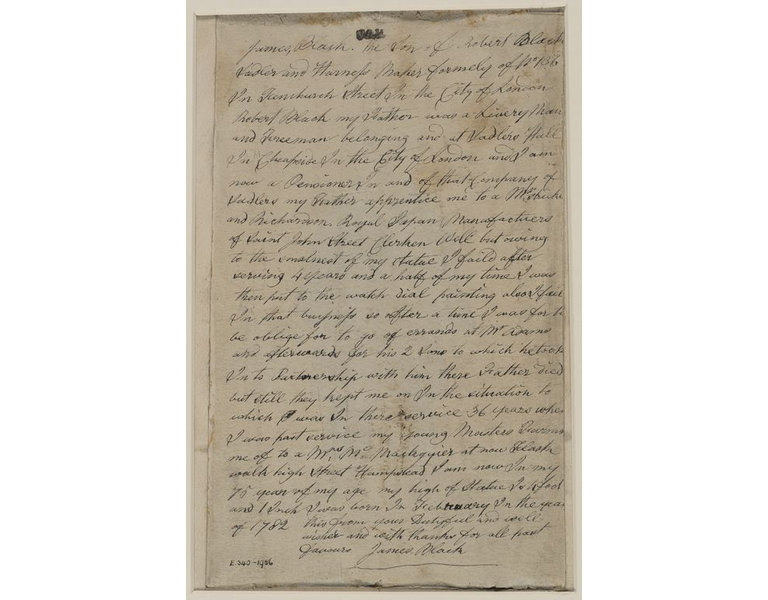 James Black. the Son of Robert Black
Sadler and Harness Maker formely of No 136
In Fenchurch Street In the City of London
Robert Black my Father was a Livery Man
and Freeman belonging and at Sadlers Hall
In Cheapside In the City of London and I am
now a Pensioner In and of that Company of
Sadlers my Father apprentice me to a Mr
and Richardson. Royal Japan Manufacturers
of Saint John Street Clerken Well but owing
to the smalness of my statue I faild after
serving 4 Years and a half of my time I was
then put to the watch dial painting also I fail
In that buisness so after a time I was for to
be oblige for to go of errands at Mr Adams
and afterwards for his 2 Sons to which he took
In to Partnership with him there Father died
but still they kept me on In the situation to
which I was In there service 36 years when
I was past service my young Masters
me of to a at now Flash
walk high Street Hampstead I am now In my
75 year of my age my high of Statue Is 4 foot
and 1 Inch I was born In February In the year
of 1782 this from your Dutyful and well
wisher and with thanks for all past
favours James Black
E.340-1906